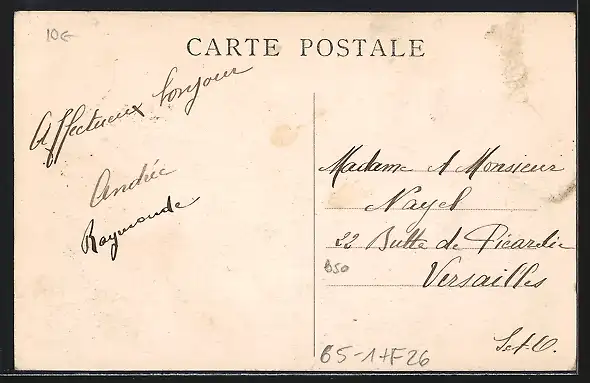 10€
CARTE POSTALE
Affectueux bonjour
Andrée
Raymonde
Madame et Monsieur
Nayel
22 Butte de Picardie
Versailles
S.et.O.
B50
65-1HF26